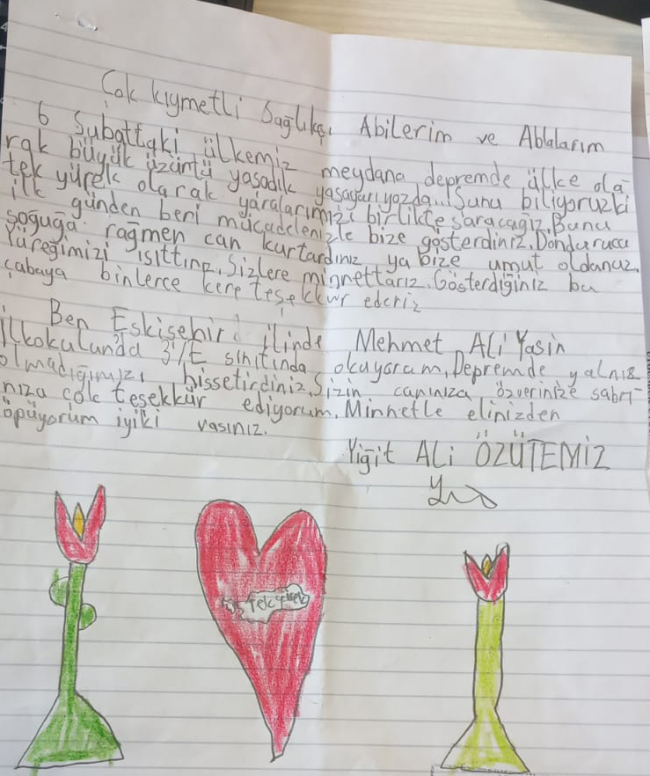 Çok kıymetli Sağlıkçı Abilerim ve Ablalarım
6 Şubattaki ülkemiz meydana depremde ülke ola-
rak büyük üzüntü yaşadık yaşayarıyozda...Şunu biliyoruzki
tek yürek olarak yaralarımızı birlikte saracağız.Bunu
ilk günden beri mücadelenizle bize gösterdiniz.Dondurucu
soğuğa rağmen can kurtardınız ya bize umut oldunuz.
Yüreğimizi ısıttınız.Sizlere minnettarız.Gösterdiğiniz bu
çabaya binlerce kere teşekkür ederiz
Ben Eskişehir ilinde Mehmet Ali Yasin
ilkokulunda 3/E sınıfında okuyorum.Depremde yalnız
olmadığımızı hissetirdiniz.Sizin canınıza özverinize sabrı-
nıza çok teşekkür ediyorum.Minnetle elinizden
öpüyorum iyiki varsınız.
Yiğit Ali ÖZÜTEMİZ
Tek yürek